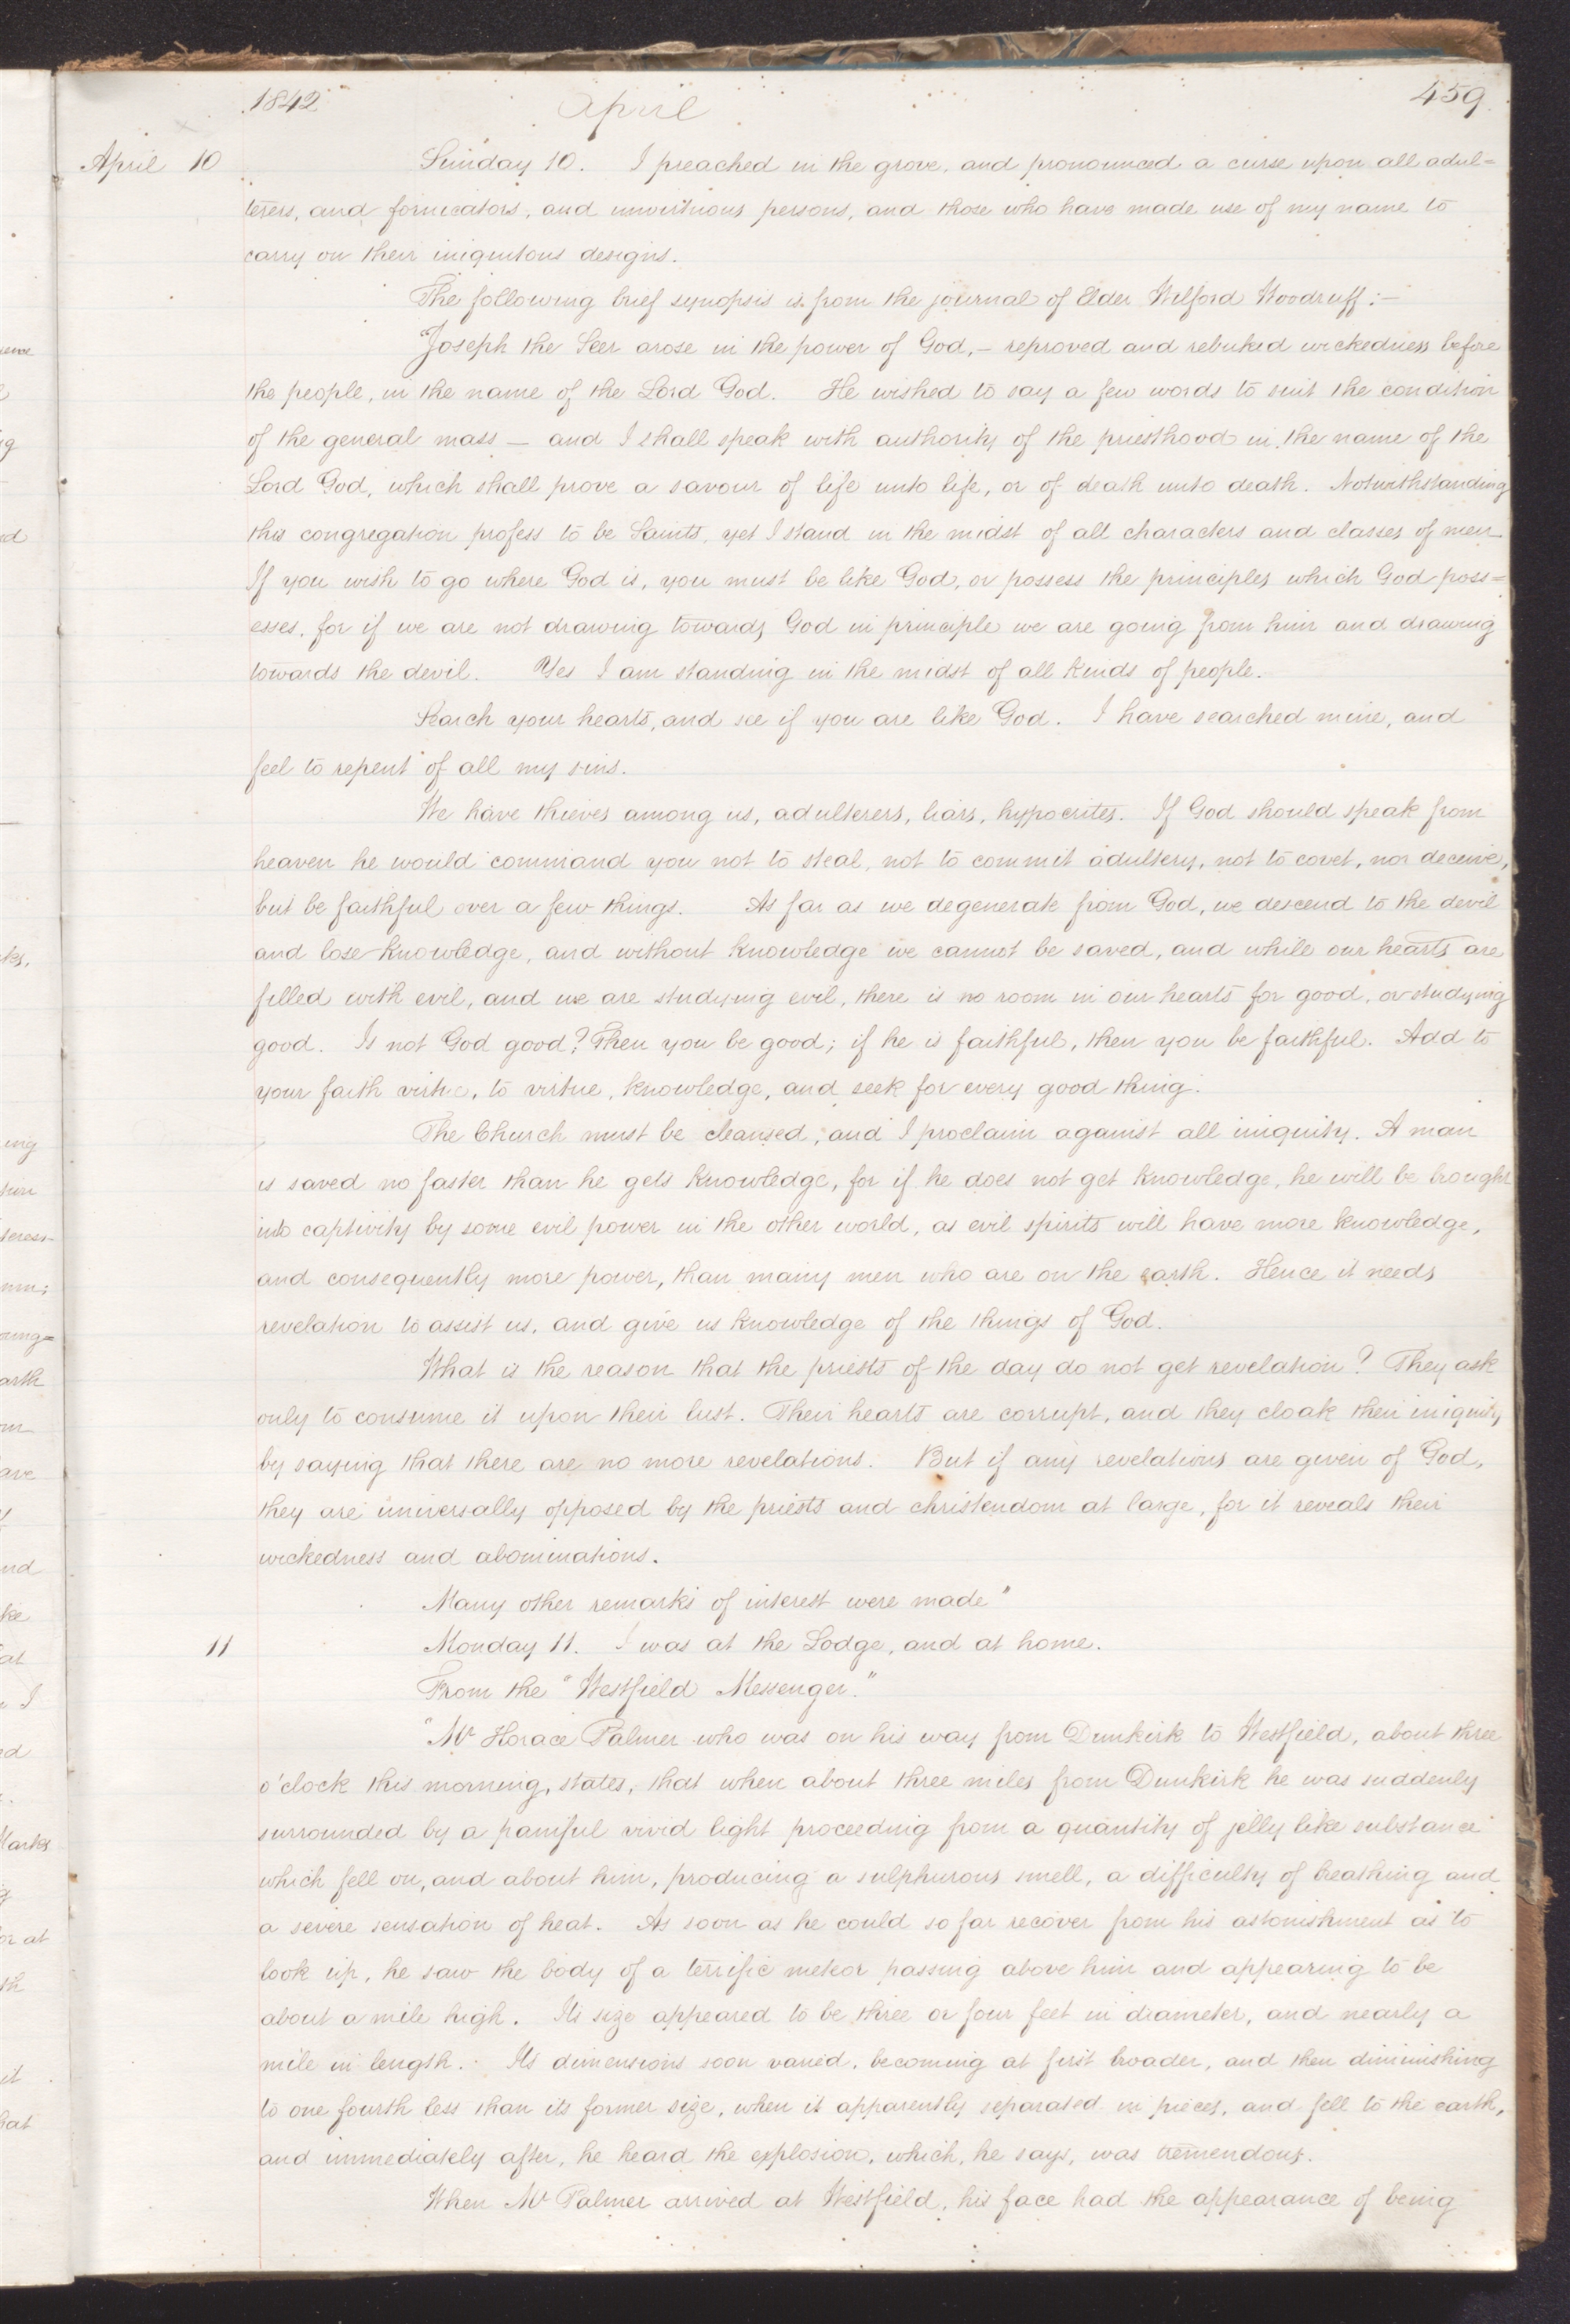 1842 April 459
April 10 Sunday 10. I preached in the grove, and pronounced a curse upon all adul=
terers, and fornicators, and unvirtuous persons, and those who have made use of my name to
carry on their iniquitous designs.
The following brief synopsis is from the journal of Elder Wilford Woodruff:—
"Joseph the Seer arose in the power of God,— reproved and rebuked wickedness before
the people, in the name of the Lord God. He wished to say a few words to suit the condition
of the general mass — and I shall speak with authority of the priesthood in the name of the
Lord God, which shall prove a savour of life unto life, or of death unto death. Notwithstanding
this congregation profess to be Saints, yet I stand in the midst of all characters and classes of men
If you wish to go where God is, you must be like God, or possess the principles which God poss=
esses, for if we are not drawing towards God in principle we are going from him and drawing
towards the devil. Yes I am standing in the midst of all kinds of people.
Search your hearts, and see if you are like God. I have searched mine, and
feel to repent of all my sins.
We have thieves among us, adulterers, liars, hypocrites. If God should speak from
heaven he would command you not to steal, not to commit adultery, not to covet, nor deceive,
but be faithful over a few things. As far as we degenerate from God, we descend to the devil
and lose knowledge, and without knowledge we cannot be saved, and while our hearts are
filled with evil, and we are studying evil, there is no room in our hearts for good, or studying
good. Is not God good? Then you be good; if he is faithful, then you be faithful. Add to
your faith virtue, to virtue, knowledge, and seek for every good thing.
The Church must be cleansed, and I proclaim against all iniquity. A man
is saved no faster than he gets knowledge, for if he does not get knowledge, he will be brought
into captivity by some evil power in the other world, as evil spirits will have more knowledge,
and consequently more power, than many men who are on the earth. Hence it needs
revelation to assist us, and give us knowledge of the things of God.
What is the reason that the priests of the day do not get revelation? They ask
only to consume it upon their lust. Their hearts are corrupt, and they cloak their iniquity
by saying that there are no more revelations. But if any revelations are given of God,
they are universally opposed by the priests and christendom at large, for it reveals their
wickedness and abominations.
Many other remarks of interest were made"
11 Monday 11. I was at the Lodge, and at home.
From the "Westfield Messenger."
"Mr Horace Palmer who was on his way from Dunkirk to Westfield, about three
o'clock this morning, states, that when about three miles from Dunkirk he was suddenly
surrounded by a painful vivid light proceeding from a quantity of jelly like substance
which fell on, and about him, producing a sulphurous smell, a difficulty of breathing and
a severe sensation of heat. As soon as he could so far recover from his astonishment as to
look up, he saw the body of a terrific meteor passing above him and appearing to be
about a mile high. Its size appeared to be three or four feet in diameter, and nearly a
mile in length. Its dimensions soon varied, becoming at first broader, and then diminishing
to one fourth less than its former size, when it apparently separated in pieces, and fell to the earth,
and immediately after, he heard the explosion, which, he says, was tremendous.
When Mr Palmer arrived at Westfield, his face had the appearance of being